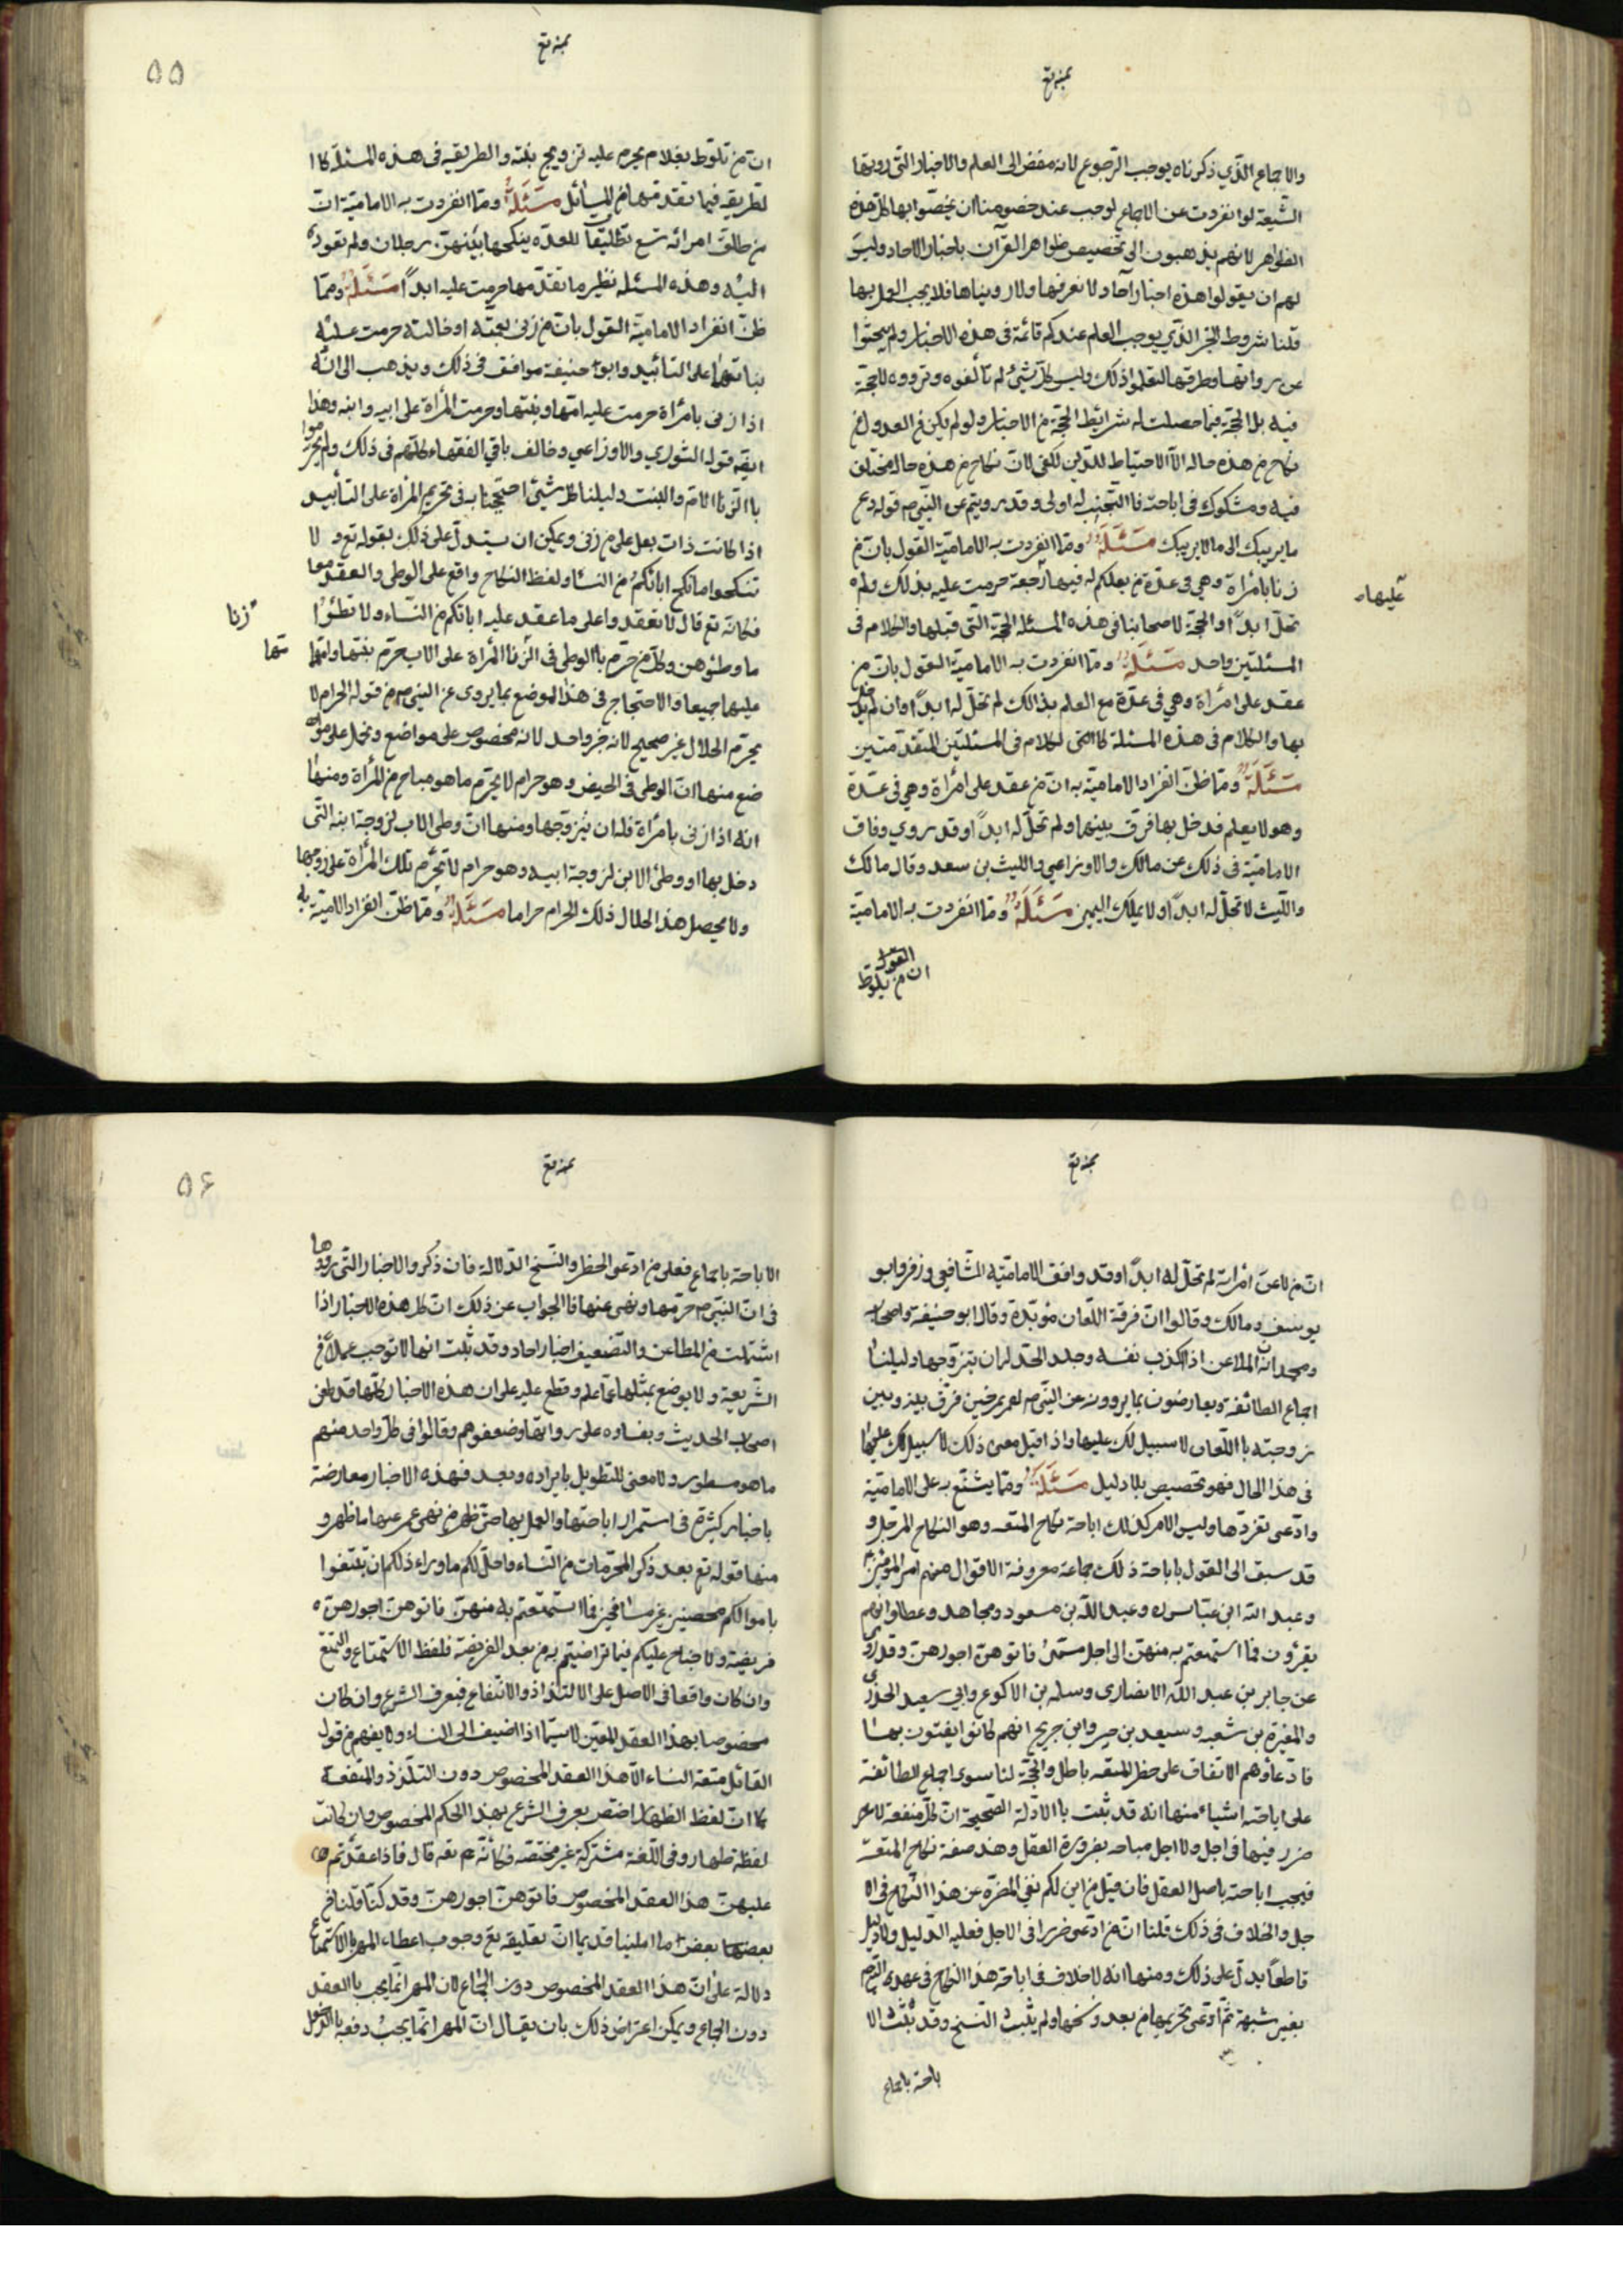 والاجماع الذي ذكرناه يوجب الرجوع لانه مفض الى العلم والاخبار التي رويتها
الشيعة لو انفردت عن الاجماع لوجب عند خصومنا ان يخصوا بها كل هذه
الظواهر لانهم يذهبون الى تخصيص ظواهر القرآن باخبار الاحاد وليس
لهم ان يقولوا هذه اخبار آحاد لا نعرفها ولا رويناها فلا يجب العمل بها
قلنا شروط الخبر الذي يوجب العلم عندكم قائمة في هذه الاخبار ولم يبحثوا
عن رواتها وطرقها لتعلموا ذلك وليس كل شيء لم تألفوه وترووه لا حجة
فيه بل الحجة فيما حصلت له شرائط الحجة من الاخبار ولو لم يكن في العدول عن
نكاح من هذه حاله الا الاحتياط للدين لكفى لان نكاح من هذه حاله مختلف
فيه ومشكوك في اباحته فا التجنب له اولى وقد رويتم عن النبي ص قوله دع
ما يريبك الى ما لا يريبك مسئلة ومما انفردت به الامامية القول بان من
زنا بامرأة وهي في عدة من بعلكم له فيها رجعة حرمت عليه بذلك ولم
عليها
تحل ابدا والحجة لاصحابنا في هذه المسئلة الحجة التي قبلها والكلام في
المسئلتين واحد مسئلة ومما انفردت به الامامية القول بان من
عقد على امرأة وهي في عدة مع العلم بذالك لم تحل له ابدا وان لم يدخل
بها والكلام في هذه المسئلة كا الكلام في المسئلتين المتقدمتين
مسئلة ومما ظن انفراد الامامية به ان من عقد على امرأة وهي في عدة
وهو لا يعلم فدخل بها فرق بينهما ولم تحل له ابدا وقد روي وفاق
الامامية في ذلك عن مالك والاوزاعي والليث بن سعد وقال مالك
والليث لا تحل له ابدا ولا بملك اليمين مسئلة ومما انفردت به الامامية
القول
ان من تلوط
۵۵
ان من تلوط بغلام يحرم عليه تزويج بنته والطريقة في هذه المسئلة كا ا
لطريقه فيما تقدمها من المسائل مسئلة ومما انفردت به الامامية ان
من طلق امرأته تسع تطليقا للعدة ينكحها بينهن رجلان ولم تعود
اليه وهذه المسئلة نظير ما تقدمها حرمت عليه ابدا مسئلة ومما
ظن انفراد الامامية القول بان من زنى بعمته او خالته حرمت عليه
بناتهما على التأبيد وابو حنيفة موافق في ذلك ويذهب الى انه
اذا زنى بامرأة حرمت عليه امها وبنتها وحرمت المرأة على ابيه وابنه وهذا
ايضا قول الثوري والاوزاعي وخالف باقي الفقهاء كلهم في ذلك ولم يحرموا
با الزنا الام والبنت دليلنا كل شئ احتججنا به في تحريم المرأة على التأبيد
اذا كانت ذات بعل على من زنى ويمكن ان يستدل على ذلك بقوله تع ولا
تنكحوا ما نكح اباؤكم من النساء ولفظ النكاح واقع على الوطى والعقد معا
فكانه تع قال لا تعقدوا على ما عقد عليه اباؤكم من النساء ولا تطئوا
زنا
ما وطئوهن وكل من حرم با الوطى في الزنا المرأة على الاب حرم بنتها وامها
عليهما جميعا والاحتجاج في هذا الموضع بما يروى عن النبي ص من قوله الحرام لا
يحرم الحلال غير صحيح لانه خبر واحد لانه مخصوص على مواضع ونحمل على موا
ضع منها ان الوطى في الحيض وهو حرام لا يحرم ما هو مباح من المرأة ومنها
انه اذا زنى بامرأة فله ان يتزوجها ومنها ان وطى الاب لزوجة ابنه التي
دخل بها او وطئ الابن لزوجة ابيه وهو حرام لا تحرم تلك المرأة على زوجها
ولا يحصل هذا الحلال ذلك الحرام حراما مسئلة ومما ظن انفراد الامامية به
ان من لاعن امراته لم تحل له ابدا وقد وافق الامامية الشافعي وزفر وابو
يوسف ومالك وقالوا ان فرقة اللعان مؤبدة وقال ابو حنيفة واصحابه
ومحمد ان الملاعن اذا اكذب نفسه وجلد الحد له ان يتزوجها دليلنا
اجماع الطائفة ويعارضون بما يروونه عن النبي ص لعويمر حين فرق بينه وبين
زوجته با اللعان لا سبيل لك عليها واذا قيل معنى ذلك لا سبيل لك عليها
في هذا الحال فهو تخصيص بلا دليل مسئلة ومما يشنع به على الامامية
وادعى تفردها وليس الامر كذلك اباحة نكاح المتعه وهو النكاح المؤجل و
قد سبق الى القول باباحة ذلك جماعة معروفة الاقوال منهم امير المؤمنين
وعبد الله ابن عباس ره وعبد الله بن مسعود ومجاهد وعطا وانهم
يقرؤن فما استمتعتم به منهن الى اجل مسمى فاتوهن اجورهن وقد روى
عن جابر بن عبد الله الانصاري وسلمه بن الاكوع وابي سعيد الخدري
والمغيرة بن شعبه وسعيد بن جبير وابن جريج انهم كانوا يفتون بها
فادعاؤهم الاتفاق على حظر المتعه باطل والحجة لنا سوى اجماع الطائفة
على اباحته اشياء منها انه قد ثبت با الادلة الصحيحة ان كل منفعة لا
ضرر فيها في اجل ولا اجل مباحه بضرورة العقل وهذه صفة نكاح المتعة
فيجب اباحته باصل العقل فان قيل من اين لكم نفي المضرة عن هذا النكاح في الا
جل والخلاف في ذلك قلنا ان من ادعى ضررا في الاجل فعليه الدليل ولا دليل
قاطعا يدل على ذلك ومنها انه لا خلاف في اباحة هذا النكاح في عهد النبي ص
بغير شبهة ثم ادعى تحريمها من بعد ونسخها ولم يثبت النسخ وقد ثبت الا
باحة باجماع
۵۶
الاباحة باجماع فعلى من ادعى الحظر والنسخ الدلالة فان ذكروا الاخبار التي رووها
في ان النبي ص حرمها ونهى عنها فا الجواب عن ذلك ان كل هذه الاخبار اذا
اشتملت من المطاعن والتضعيف اخبار احاد وقد ثبت انها لا توجب عملا في
الشريعة ولا يوضع بمثلها عما علم وقطع عليه على ان هذه الاخبار كلها قد طعن
اصحاب الحديث ونقاده على رواتها وضعفوهم وقالوا في كل واحد منهم
ما هو مسطور ولا معنى للتطويل بايراده وبعد فهذه الاخبار معارضة
باخبار كثيرة في استمرار اباحتها والعمل بها حتى ظهر من نهى عمر عنها ما ظهر و
منها قوله تع بعد ذكر المحرمات من النساء واحل لكم ما وراء ذلكم ان تبتغوا
باموالكم محصنين غير مسافحين فما استمتعتم به منهن فاتوهن اجورهن
فريضة ولا جناح عليكم فيما تراضيتم به من بعد الفريضة فلفظ الاستمتاع والتمتع
وان كان واقعا في الاصل على الالتذاذ والانتفاع فبعرف الشرع وان كان
مخصوصا بهذا العقد المعين لا سيما اذا اضيف الى النساء ولا يفهم من قول
القائل متعة النساء الا هذا العقد المخصوص دون التلذذ والمنفعة
كما ان لفظ الظهار اختص بعرف الشرع بهذا الحكم المخصوص وان كانت
لفظة ظهار وفي اللغة مشتركة غير مختصة فكانه تع قال فاذا عقدتم
عليهن هذا العقد المخصوص فاتوهن اجورهن وقد كنا قلنا في
بعض ما امليناه قديما ان تعليقه تع وجوب اعطاء المهر با الاستمتاع
دلالة على ان هذا العقد المخصوص دون الجماع لان المهر انما يجب با العقد
دون الجماع ويمكن اعتراض ذلك بان يقال ان المهر انما يجب دفعه با الدخول